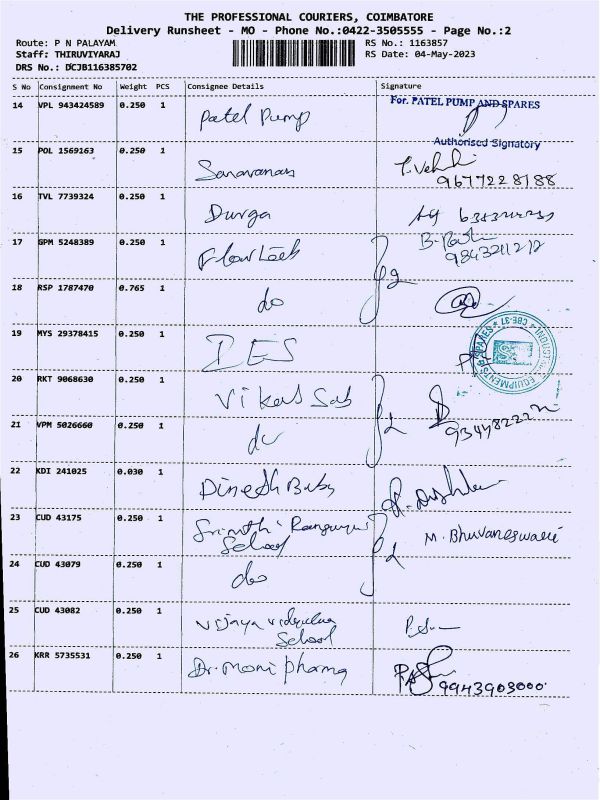 THE PROFESSIONAL COURIERS, COIMBATORE
Delivery Runsheet - MO - Phone No.:0422-3505555 - Page No.:2
Route: P N PALAYAM RS No.: 1163857
Staff: THIRUVIYARAJ RS Date: 04-May-2023
DRS No.: DCJB116385702
S No Consignment No Weight PCS Consignee Details Signature
14 VPL 943424589 0.250 1 Patel Pump For. PATEL PUMP AND SPARES
Authorised Signatory
15 POL 1569163 0.250 1 Saravanan
9677228188
16 TVL 7739324 0.250 1 Durga
17 GPM 5248389 0.250 1 Flowtech
9843211212
18 RSP 1787470 0.765 1 do 2
19 MYS 29378415 0.250 1 IES
20 RKT 9068630 0.250 1 Vikas Sab
21 VPM 5026660 0.250 1 do 2
22 KDI 241025 0.030 1 Dinesh Babu
23 CUD 43175 0.250 1 School M. Bhuvaneswari
24 CUD 43079 0.250 1 do 2
25 CUD 43082 0.250 1 Vijaya
School
26 KRR 5735531 0.250 1 Dr. Moni pharma
9943903000